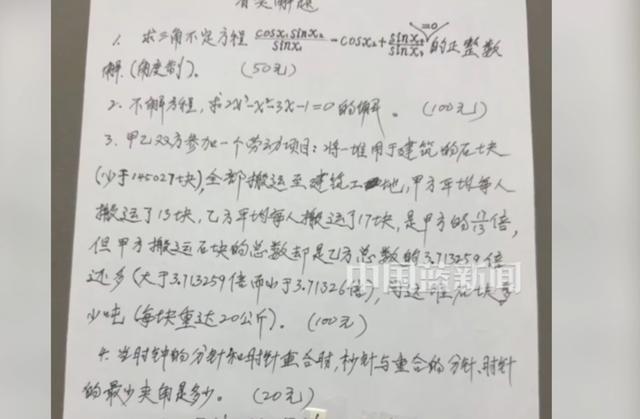 有奖解题
1. 求三角不定方程 \frac{cosx₁sinx₂}{sinx₁} - cosx₂ + \frac{sinx₃}{sinx₄} =0 的正整数
解.(角度制)。 (50元)
2. 不解方程,求2x³-x²-3x-1=0的解。 (100元)
3. 甲乙双方参加一个劳动项目:将一堆用于建筑的石块
(少于145027块),全部搬运至建筑工地,甲方平均每人
搬运了13块,乙方平均每人搬运了17块,是甲方的17/13倍,
但甲方搬运石块的总数却是乙方总数的3.713259倍
还多(大于3.713259倍而小于3.71326倍),问这堆石块多
少吨(每块重达20公斤)。 (100元)
中国蓝新闻
4. 当时钟的分针和时针重合时,秒针与重合的分针、时针
的最少夹角是多少。 (20元)